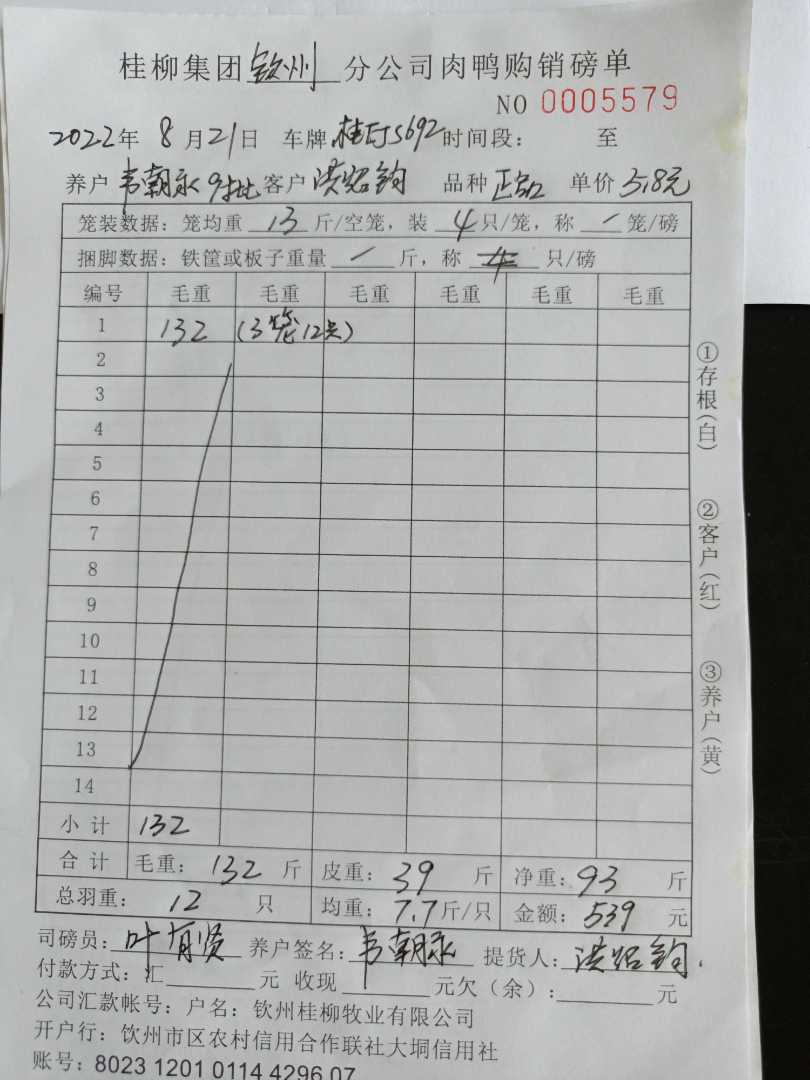 桂柳集团钦州分公司肉鸭购销磅单
NO 0005579
2022年 8月21日 车牌 桂EJS692 时间段: 至
养户 韦朝永9批 客户 洪绍钧 品种 正品 单价 5.8元
笼装数据: 笼均重 13 斤/空笼, 装 4 只/笼, 称 / 笼/磅
捆脚数据: 铁筐或板子重量 / 斤, 称 只/磅
编号 毛重 毛重 毛重 毛重 毛重 毛重
1 132 (3笼12只)
2
3
4
5
6
7
8
9
10
11
12
13
14
小计 132
合计 毛重: 132 斤 皮重: 39 斤 净重: 93 斤
总羽重: 12 只 均重: 7.7斤/只 金额: 539 元
司磅员: 叶有贤 养户签名: 韦朝永 提货人: 洪绍钧
付款方式: 汇 元 收现 元欠(余): 元
公司汇款帐号: 户名: 钦州桂柳牧业有限公司
开户行: 饮州市区农村信用合作联社大垌信用社
账号: 8023 1201 0114 4296 07
①存根(白)
②客户(红)
③养户(黄)